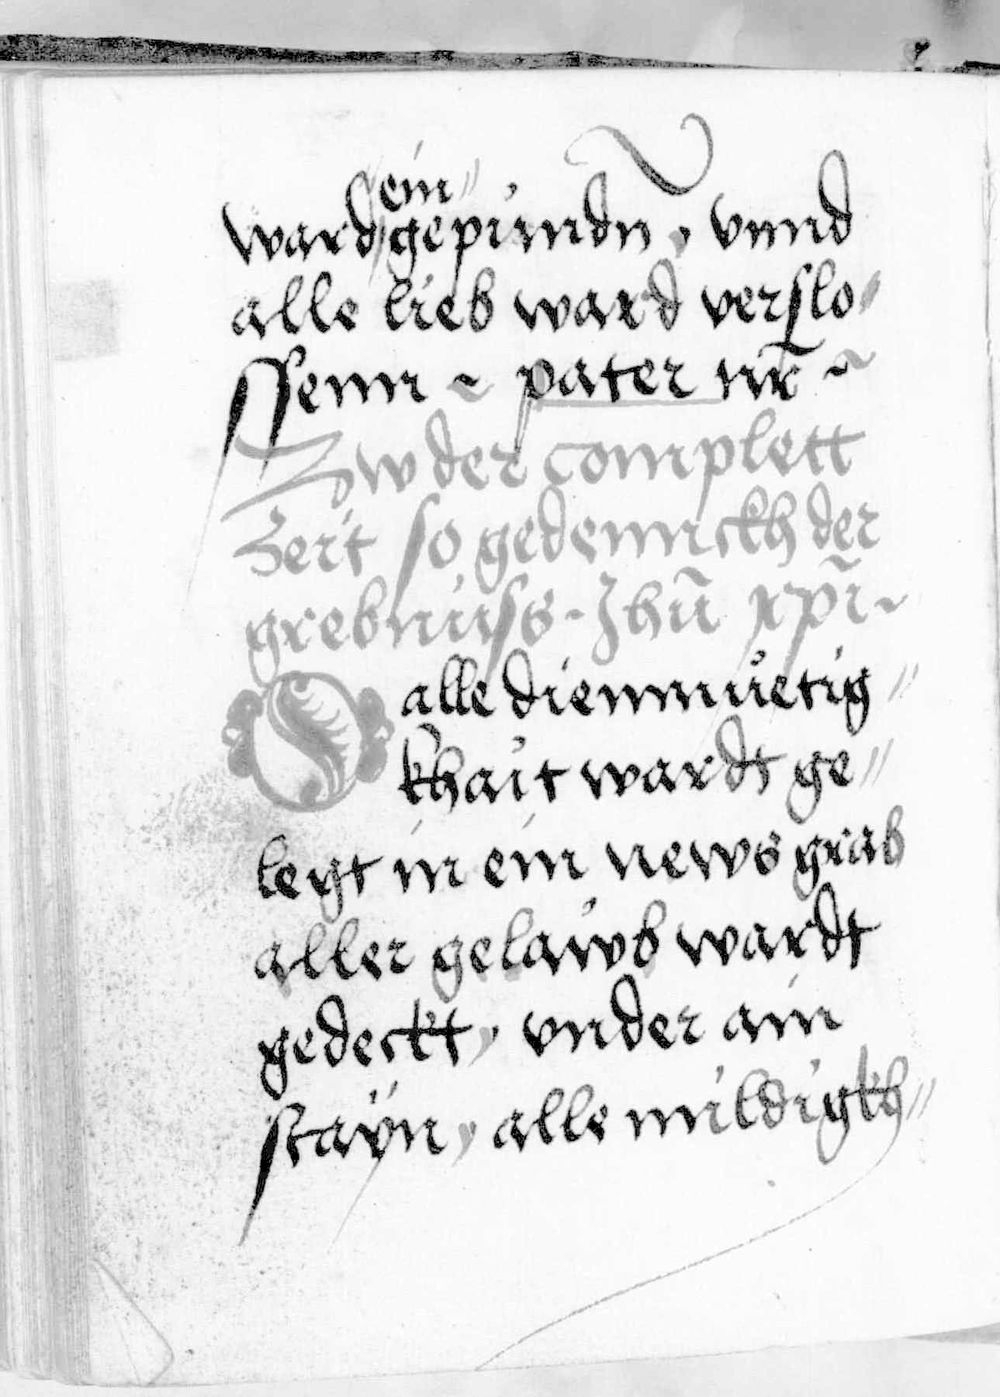 ein
ward gepundn, vnnd
alle lieb ward verslo-
ssenn ~ pater nr̄ ~
Zw der complett
Zeit so gedennckh der
grebnuss - Jhū xpī ~
O alle diemmuetig
khait wardt ge
legt in ein news grab
aller gelawb wardt
gedeckt, vnder ain
stayn, alle mildigkh